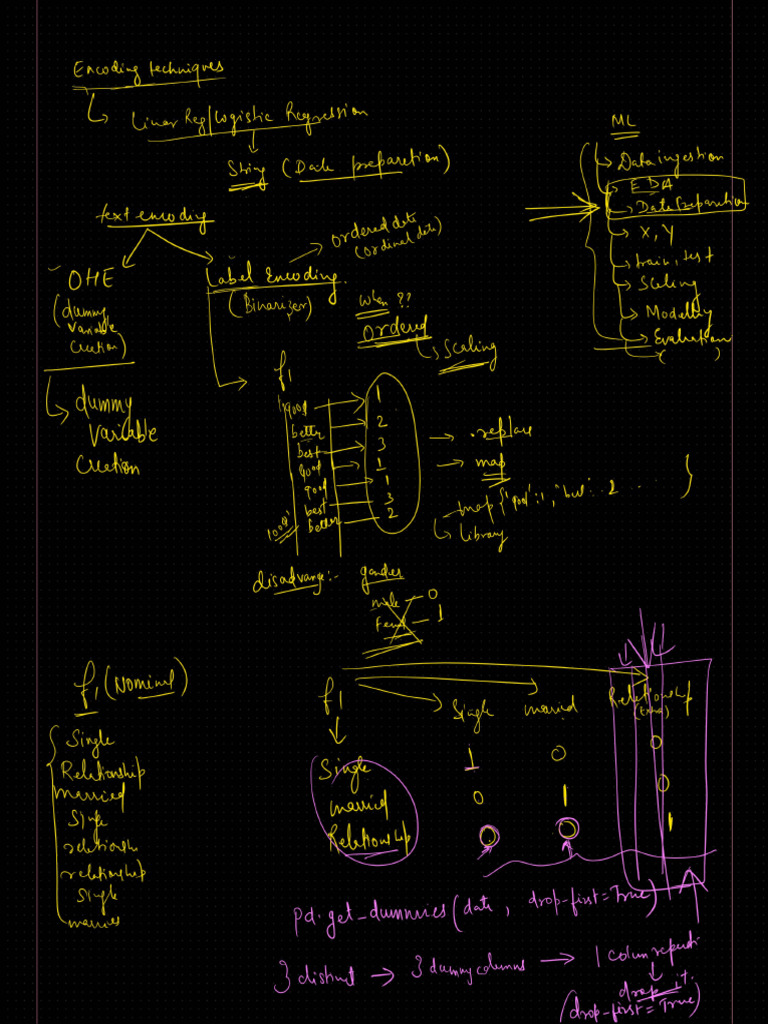 Encoding techniques
Linear Reg/Logistic Regression
String (Data preparation)
text encoding
OHE
(dummy
variable
creation)
dummy
variable
creation
Label Encoding.
(Binarizer)
ordered data
(ordinal data)
When ??
ordered
scaling
ML
Data ingestion
EDA
Data Preparation
X, Y
train, test
Scaling
Modelling
Evaluation
( )
f1
good 1
better 2
best 3
good 1
good 1
best 3
better 2
.replace
map
map {'good':1, 'best':.2 .... }
library
disadvange:- gender
male 0
Fem 1
f1 (Nominal)
Single
Relationship
married
Single
relationshi
relationship
Single
married
f1 Single married Relationship
(Extra)
Single 1 0 0
married 0 1 0
Relationship 0 0 1
pd.get_dummies(data, drop-first=True)
3 distinct → 3 dummy columns → 1 column
drop it.
(drop-first=True)